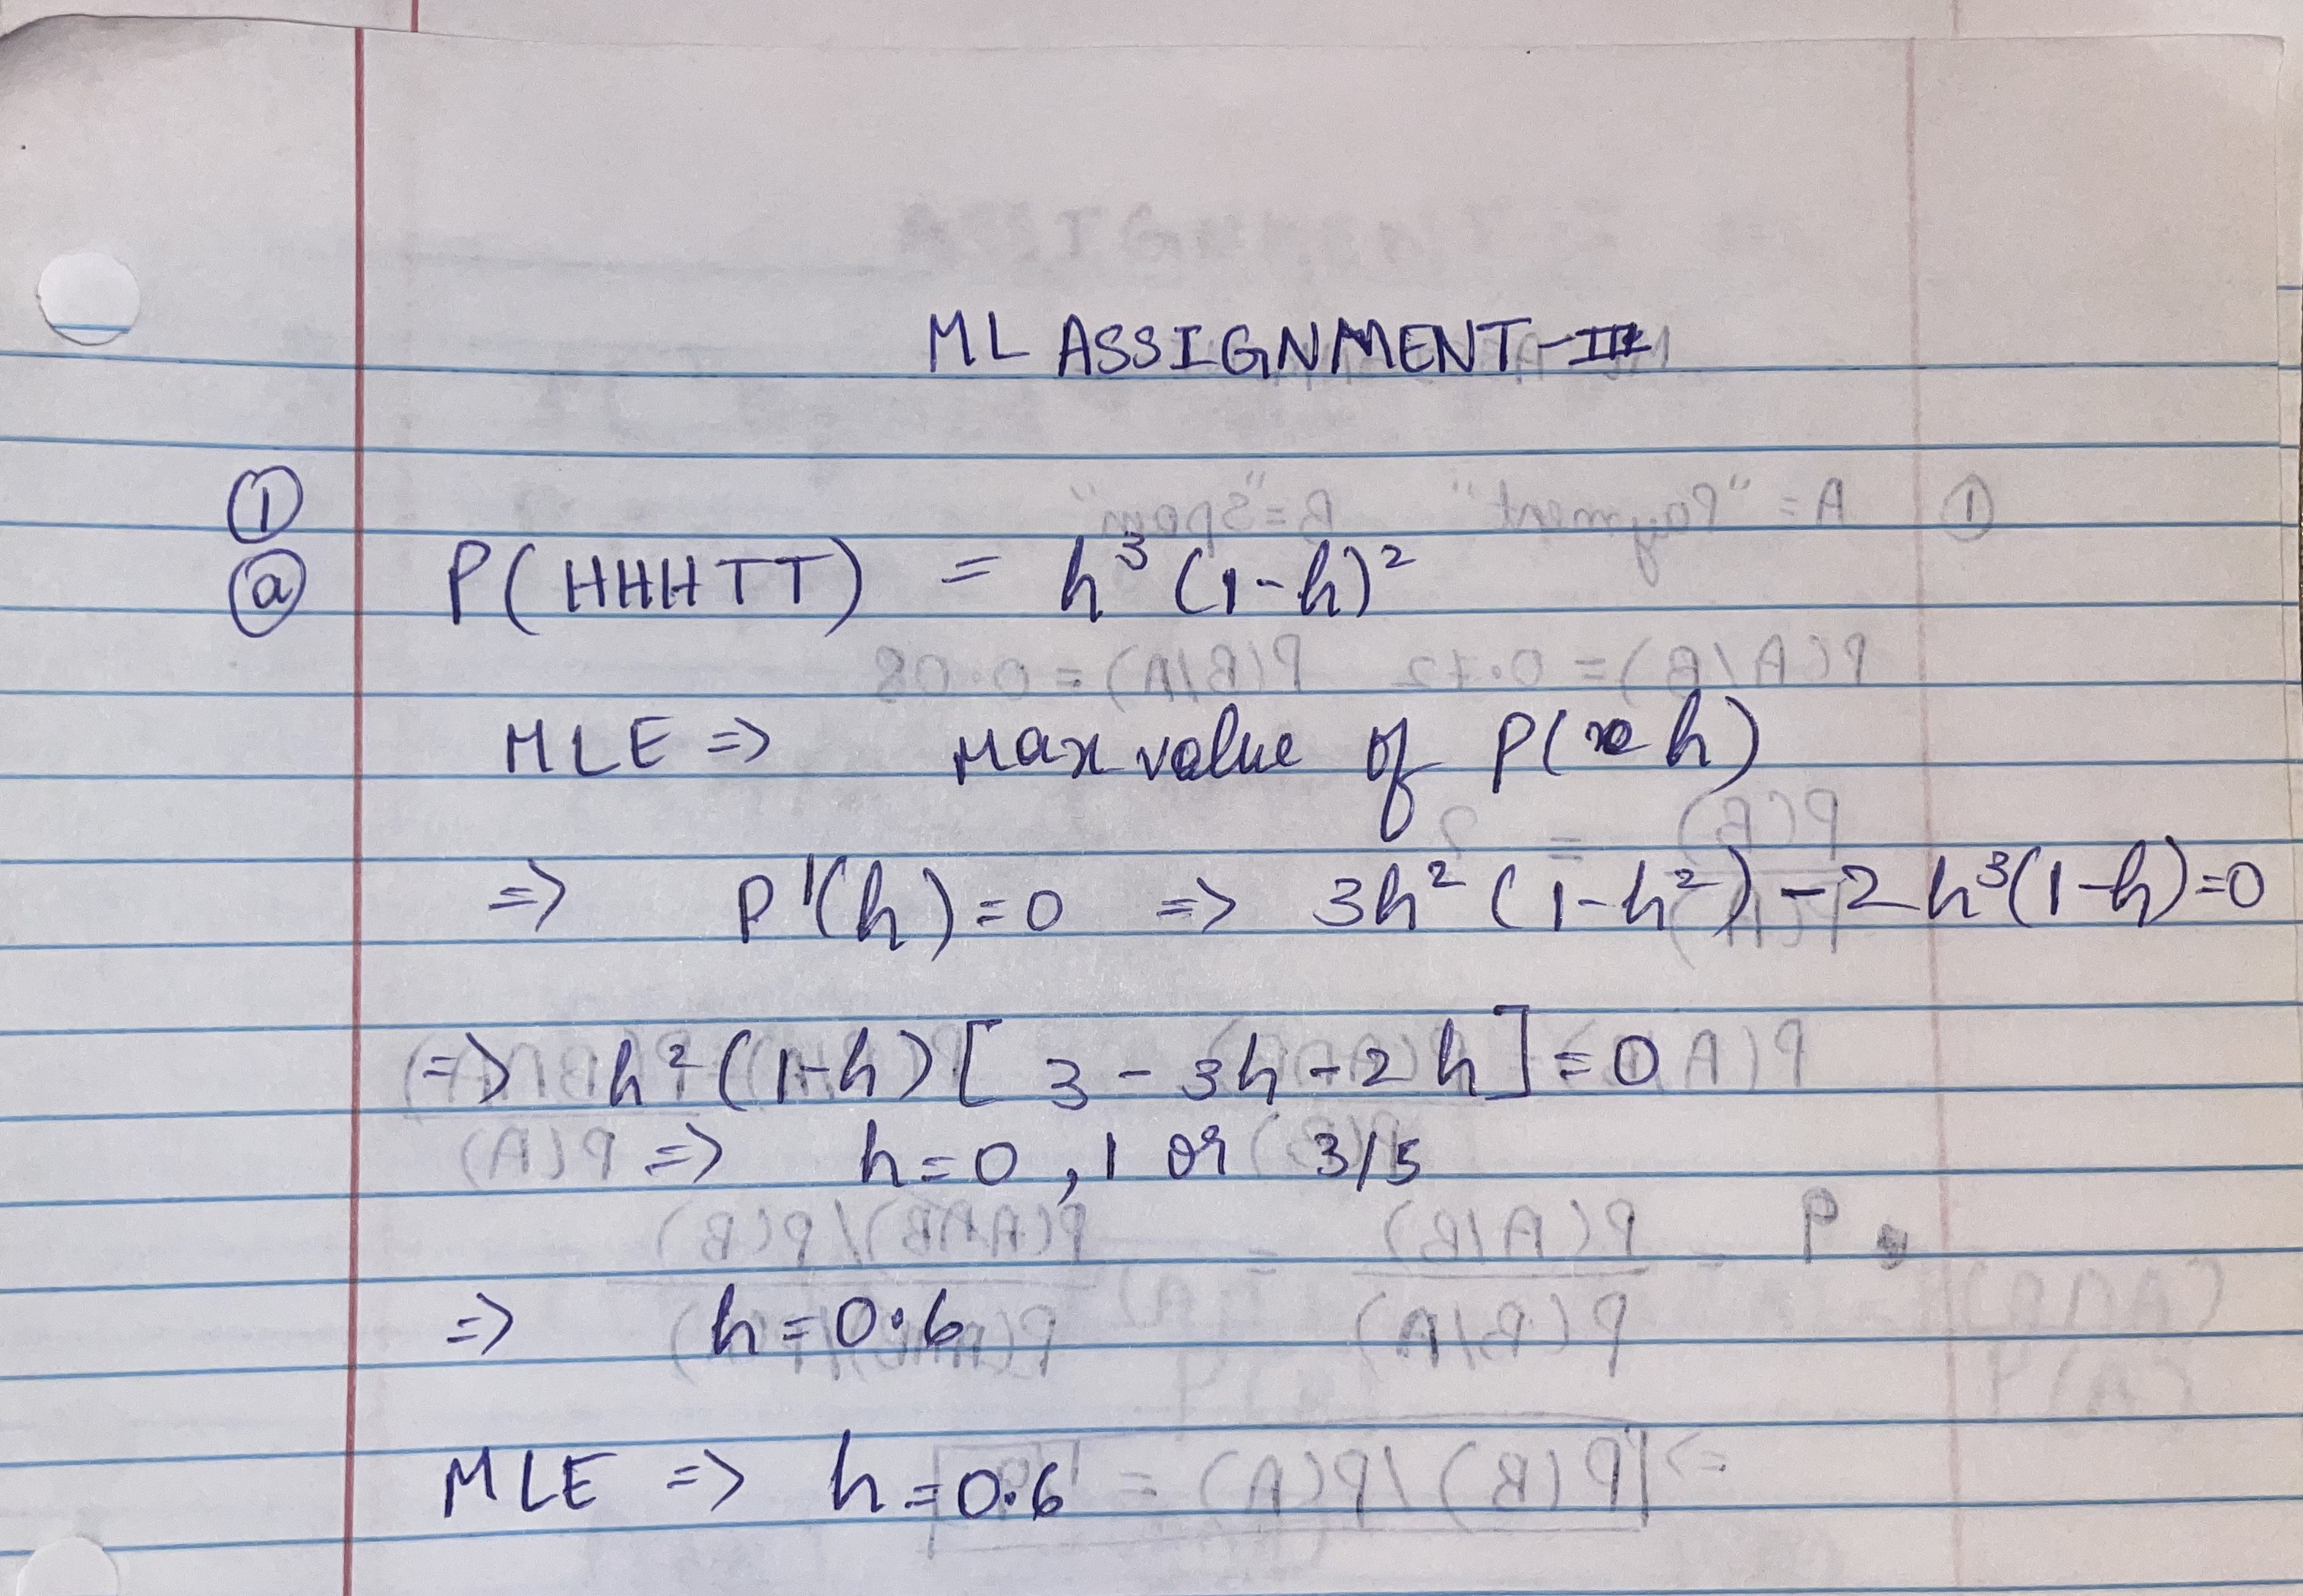 ML ASSIGNMENT-III
①
ⓐ P(HHHTT) = h³(1-h)²
MLE => Max value of P(h)
=> P'(h)=0 => 3h²(1-h²)-2h³(1-h)=0
=> h²(1-h)[3-3h-2h]=0
=> h=0,1 or 3/5
=> h=0.6
MLE => h=0.6